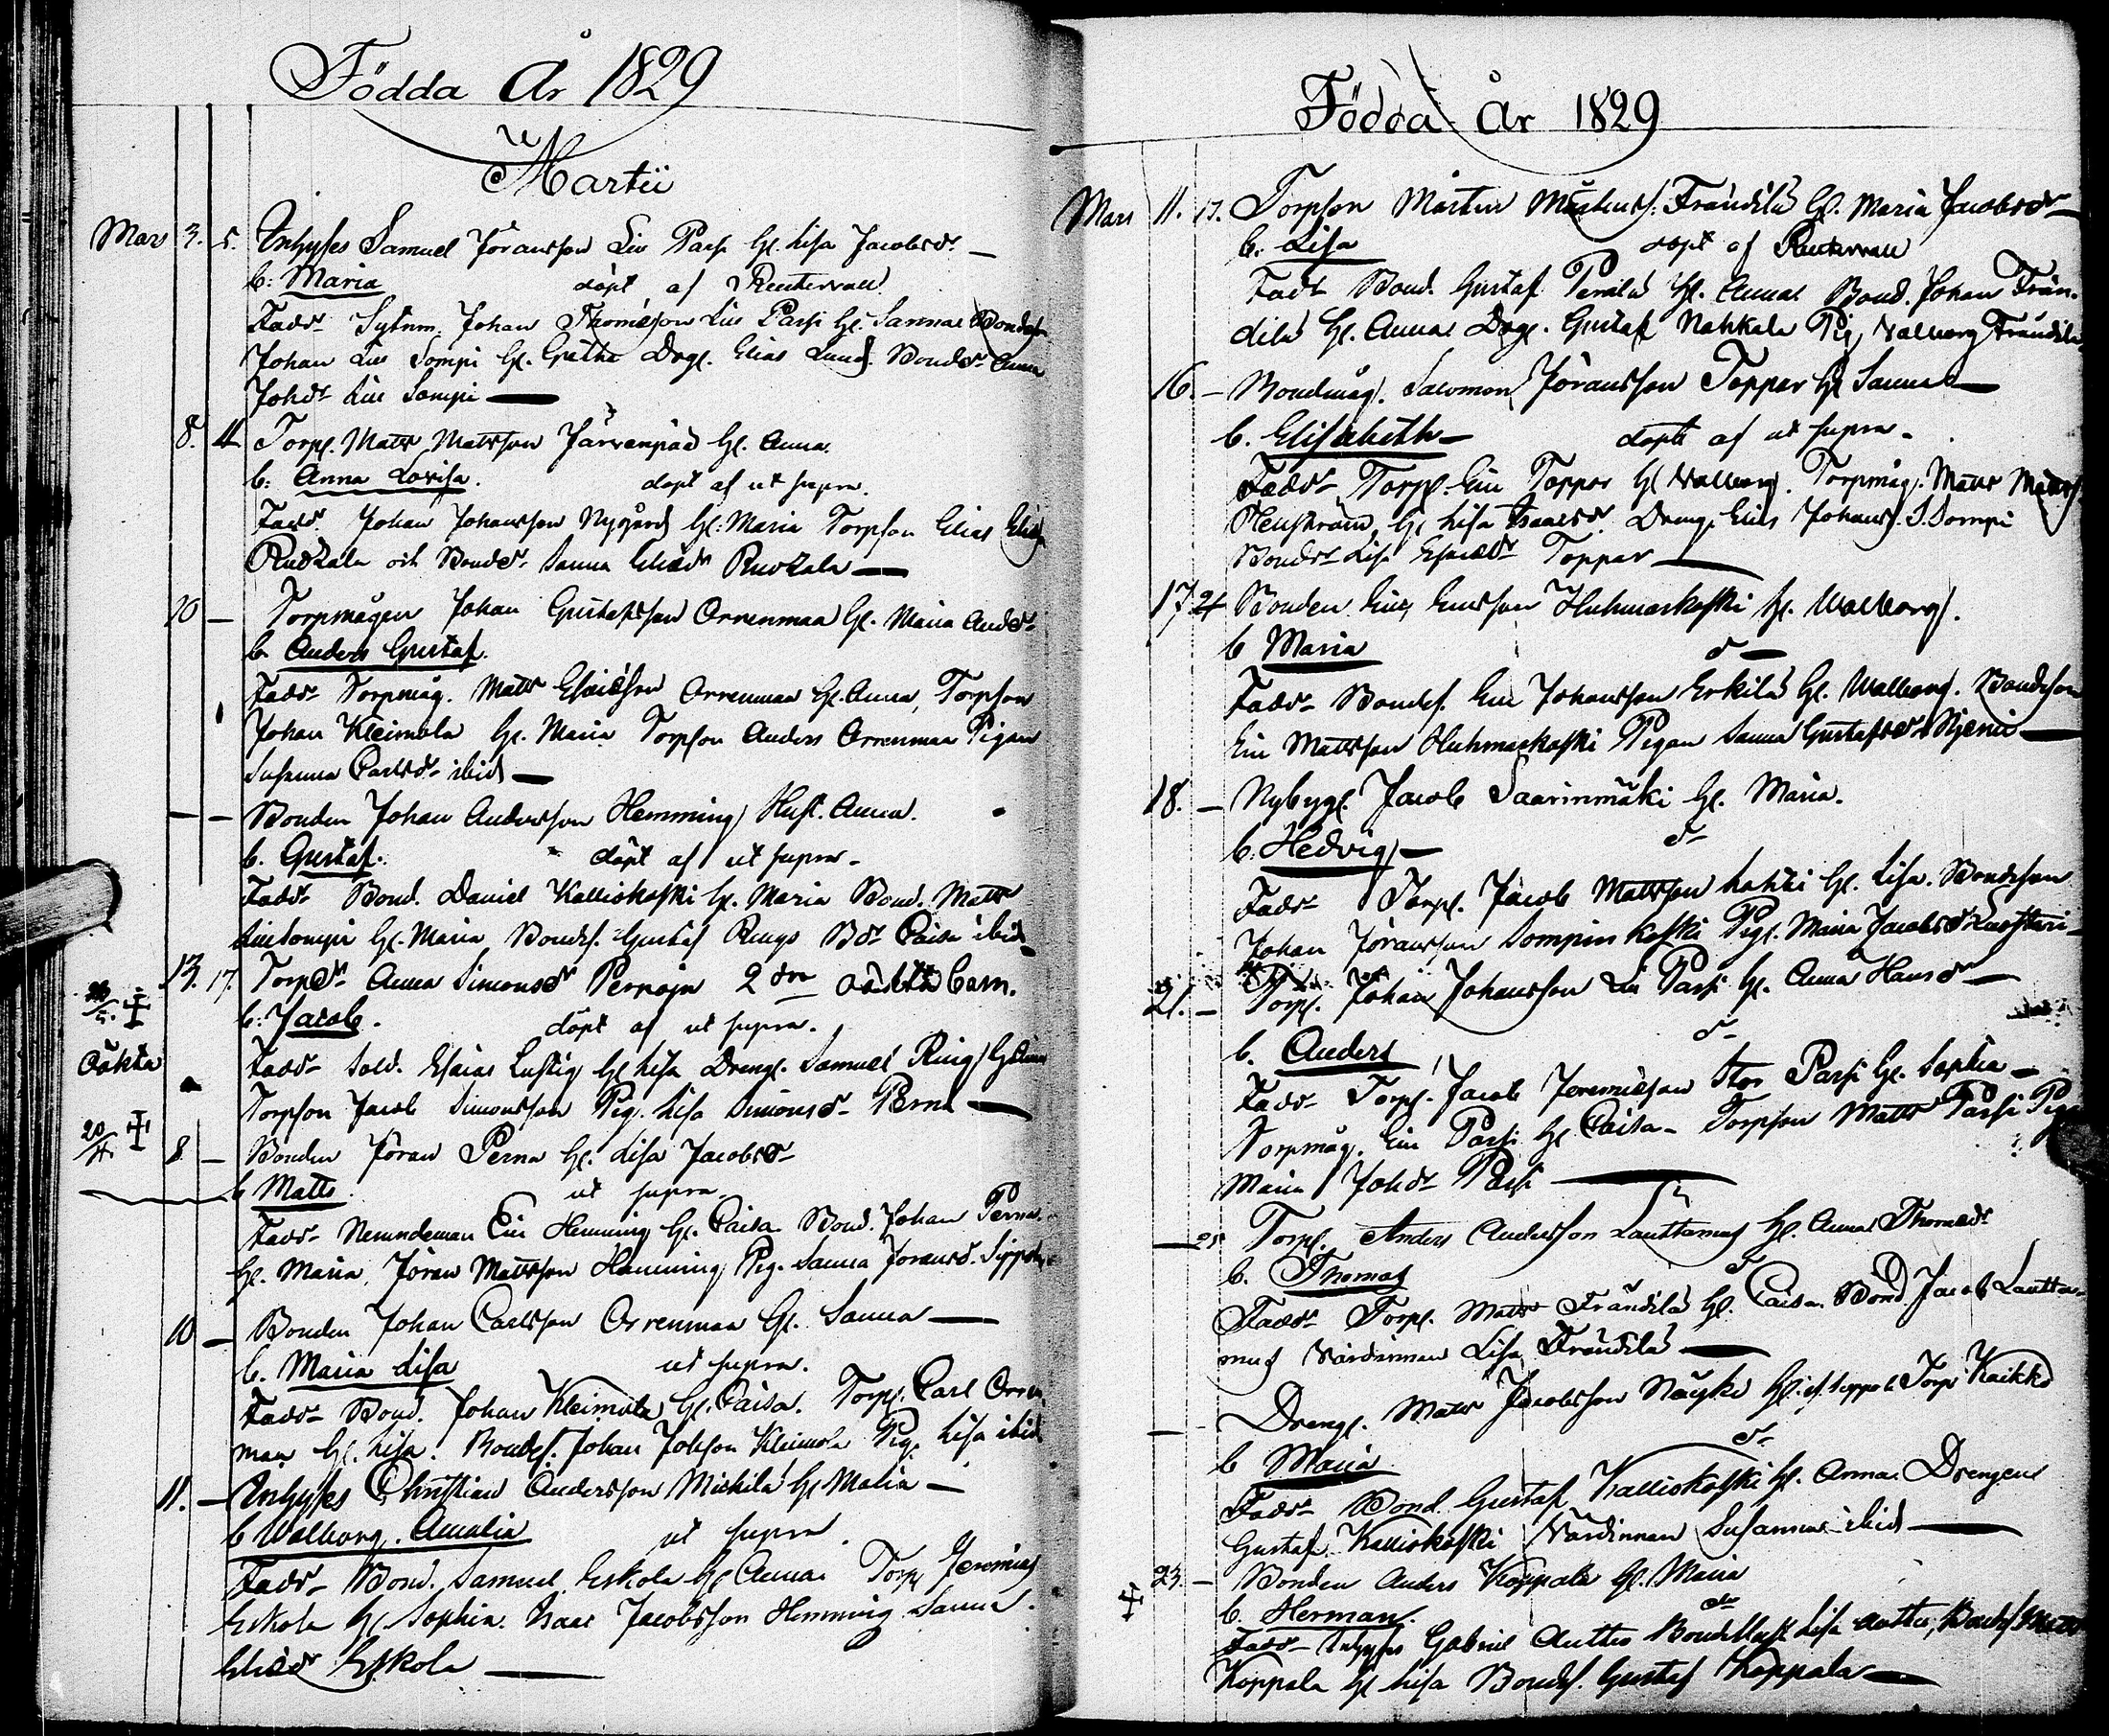 Födda År 1829
Martii
Mars 3. 5. Inhyses Samuel Jöransson Liu Passi H. Lisa Jacobsdr
b: Maria döpt af Reuterwall
Faddr Sytnm. Johan Thomasson Liu Passi H. Sanna Bondes.
Johan Liu Sompi H. Greta Dräg. Elias Lund. Bonddr Anna
Johdr Liu Sompi
8. 11 Torp. Matts Mattsson Järvenpää H. Anna.
b: Anna Lovisa. döpt af ut supra.
Faddr Johan Johansson Nygård H. Maria Torpson Elias
Ruokala och Bonddr Sanna Eliædr Ruokala
10 — Torpmågen Johan Gustafsson Orrenmaa H. Maria Andersdr
b. Anders Gustaf.
Faddr Torpmåg. Matts Esaiæson Orrenmaa H. Anna, Torpson
Johan Kleimola H. Maria Torpson Anders Orrenmaa Pigan
Susanna Carlsdr ibid
— — Bonden Johan Andersson Hemming Hust. Anna.
b. Gustaf. döpt af ut supra
Faddr Bond. Daniel Kalliokoski H. Maria Bond. Matts
Liusompi H. Maria Bondes. Gustaf Caisa ibid
13. 17. Torpdr Anna Simonsdr Pernaja 2 dra oäkta barn.
b: Jacob. döpt af ut supra.
Oäkta Faddr Sold. Esaias Lustig H. Lisa Dreng. Samuel Ring
Torpson Jacob Simonsson Pig. Lisa Simonsdr Perna
20/4. 8 — Bonden Jöran Perna H. Lisa Jacobsdr
b Matts. ut supra
Faddr Nemndeman Eric Hemming H. Caisa Bond. Johan Perna
H. Maria, Jöran Mattsson Hemming Pig. Sanna Joransd.
10 — Bonden Johan Carlsson Orrenmaa H. Sanna
b. Maria Lisa ut supra.
Faddr Bond. Johan Kleimola H. Caisa. Torp. Carl Orren
maa H. Lisa. Bondes. Johan Johsson Kleimola Pig. Lisa ibid
11. — Inhyses Christian Andersson Mickilä H Malia
b Walborg. Amalia ut supra.
Faddr Bond. Samuel Eskola H Anna Torp Jeremias
Eskola H. Sophia. Isaac Jacobsson Hemming Sanna
Eliædr Eskola
Födda År 1829
Mars 11. 17. Torpson Mårten Mårtenss. Frändilä H. Maria Jacobsdr
b. Lisa döpt af Reuterwall
Faddr Bond. Gustaf Perälä H. Anna Bond. Johan Frän
dilä H. Anna Dreng. Gustaf Nahkala Pig Valborg Frändilä
16. — Bondmåg. Salomon Jöransson Toppar H Sanna
b. Elisabeth döpt af ut supra
Faddr Torp. Eric Toppar H Walborg. Torpmåg. Matts
H. Lisa Isaacsdr Dreng. Elias Johanss. S. Sompi
Bonddr Lisa Esaiædr Toppar
17 24 Bonden Eric Ericsson Huhmarkoski H. Walborg.
b Maria do
Faddr Bondes. Eric Johansson Erkilä H. Walborg. Bondeson
Eric Mattsson Huhmarkoski Pigan Sanna Gustafsdr
18. — Nybygg. Jacob Saarinmäki H. Maria.
b. Hedvig do
Faddr Torp. Jacob Mattsson Lahti H. Lisa. Bondeson
Johan Jöransson Sompinkoski Pig. Maria Jacobsd
21. — Torp. Johan Johansson Liu Passi H. Anna Hansdr
b. Anders do
Faddr Torp. Jacob Jeremiæson Stor Passi H. Sophia
Torpmåg. Eric Passi H Caisa Torpson Matts Passi Pig
Maria Johdr Passi
— 25 Torp. Anders Andersson Lauttamus H. Anna Thomædr
b. Thomas do
Faddr Torp. Matts Frändilä H. Caisa Bond Jacob Lautta
mus Värdinnan Lisa Frändilä
— Dreng. Matts Jacobsson Näyki Torp Kaikko
b Maria do
Faddr Bond. Gustaf Kalliokoski H. Anna Drengen
Gustaf Kalliokoski Värdinnan Susanna ibid
23. — Bonden Anders Koppala H. Maria
b. Herman. do
Faddr Inhyses Gabriel Anttio Bond. Hust Lisa Anttio, Bondes Matts
Koppala H Lisa Bondes. Gustaf Koppala